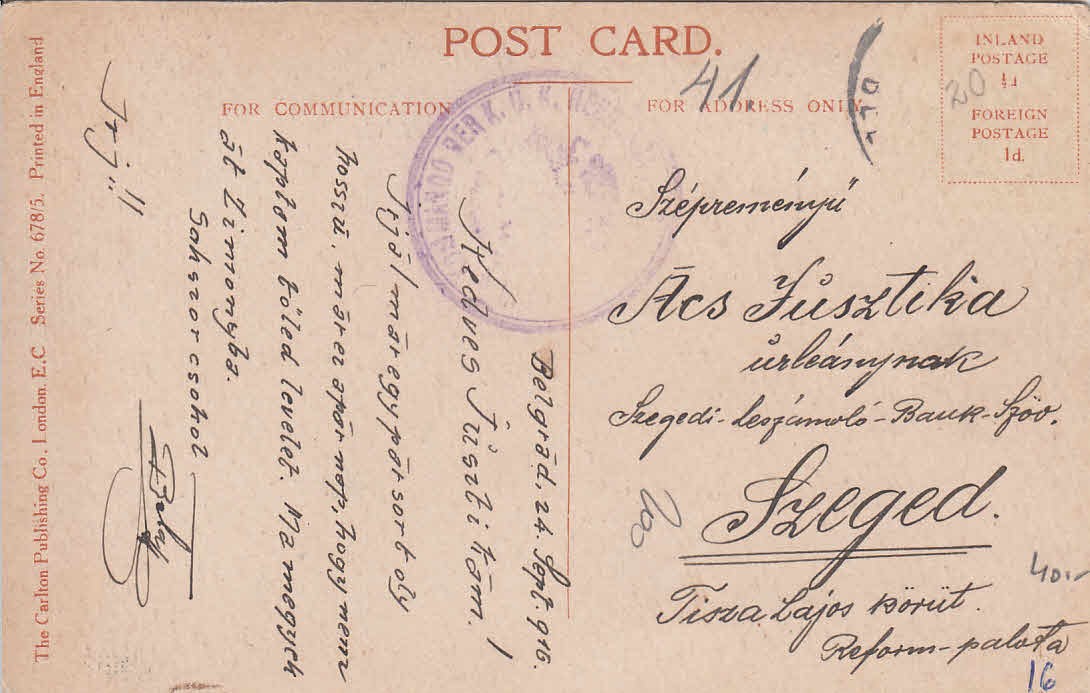 POST CARD.
FOR COMMUNICATION
FOR ADDRESS ONLY
INLAND
POSTAGE
½d
FOREIGN
POSTAGE
1d.
20
41.
The Carlton Publishing Co., London, E.C. Series No. 678/5. Printed in England
Belgrád, 24. Sept. 916.
Kedves Jusztikám!
Írjál már egy pár sort oly
hosszú, már ez a pár nap, hogy nem
kaptam tőled levelet. Ma megyek
át Zimonyba.
Sokszor csókol
Írj!!
Szépreményű
Ács Jusztika
úrleánynak
Szegedi-Leszámoló-Bank-Szöv.
Szeged.
Tisza Lajos körút.
Reform-palota
40.-
16